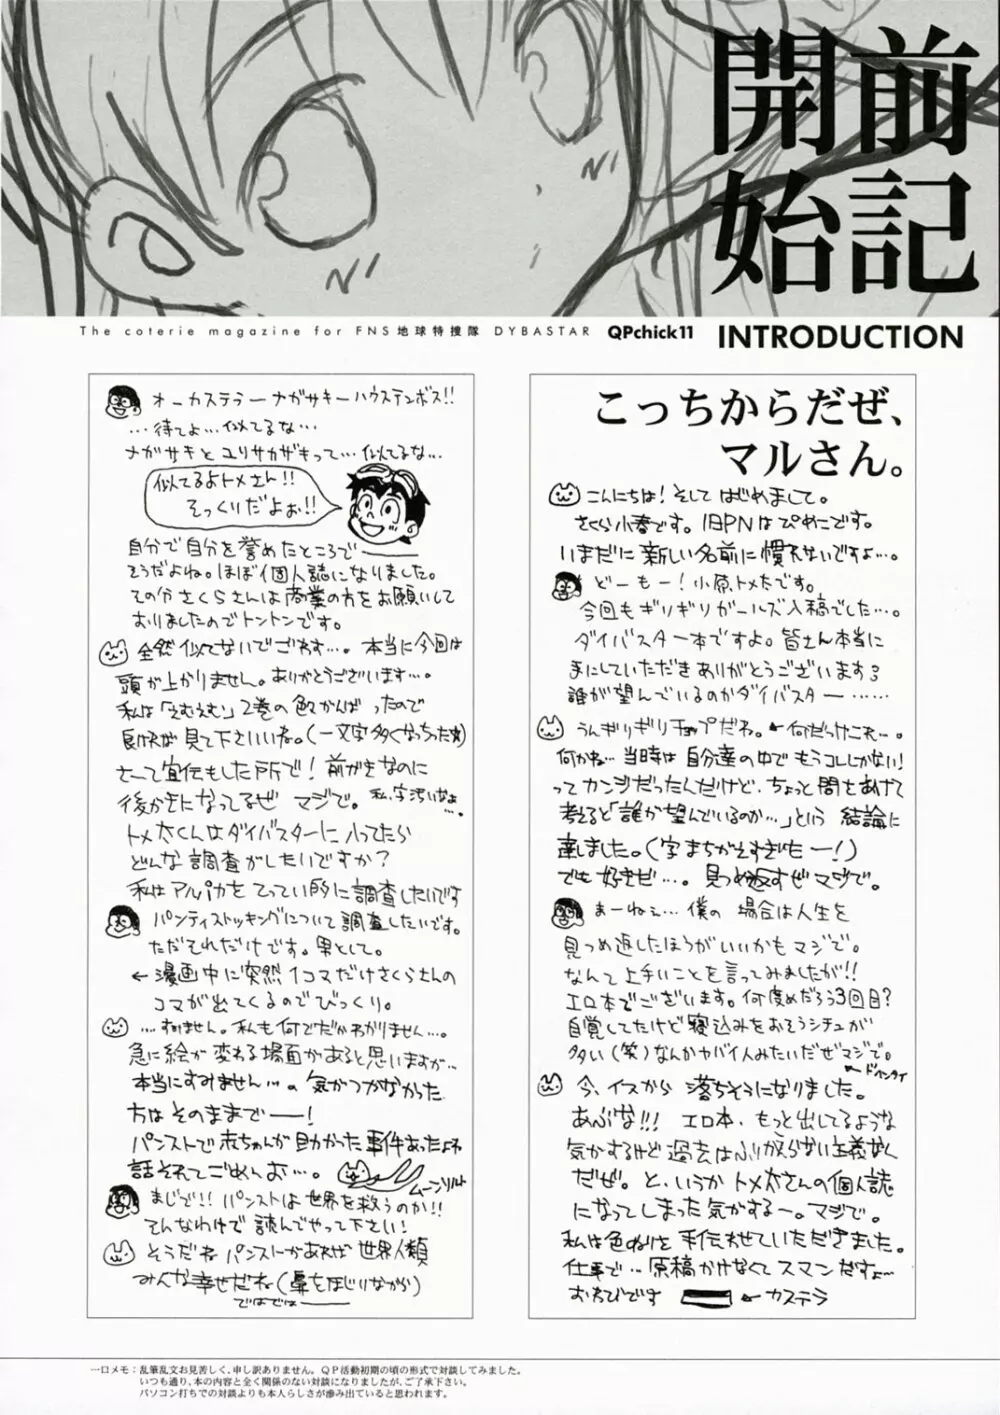 開前
始記
The coterie magazine for FNS地球特捜隊 DYBASTAR QPchick11 INTRODUCTION
こっちからだぜ、
マルさん。
こんにちは！そして はじめまして。
さくら小春です。旧PNはぴめこです。
いまだに新しい名前に慣れないですよ…。
どーもー！小原トメ太です。
今回もギリギリガールズ入稿でした…。
ダイバスター本ですよ。皆さん本当に
手にしていただきありがとうございます
誰が望んでいるのかダイバスター……
うんギリギリチョップだね。←何だっけこれ…。
何かね…当時は自分達の中でもうコレしかない！
ってカンジだったんだけど、ちょっと間をあけて
考えると「誰が望んでいるのか…」という 結論に
達しました。(字まちがえすぎたー！)
でも好きだ…。見つめ返すぜマジで。
まーねぇ…僕の 場合は人生を
見つめ返したほうがいいかもマジで。
なんて上手いことを言ってみましたが!!
エロ本でございます。何度めだろう3回目?
自覚してたけど寝込みをおそうシチュが
多い(笑)なんかヤバイ人みたいだぜマジで。
今、イスから 落ちそうになりました。
あぶな!!! エロ本、もっと出してるような
気がするけど過去はふりかえらない主義なく
だぜ。と、いうかトメ太さんの個人誌
になってしまった気がするー。マジで。
私は色ぬりを手伝わせていただきました。
仕事で…原稿かけなくてスマンだすよ…
おわびです ←カステラ
オーカステラーナガサキーハウステンボス!!
…待てよ…似てるな…
ナガサキとユリサカザキって…似てるな…
似てるよトメさん!!
そっくりだよぉ!!
自分で自分を誉めたところで――
そうだよね。ほぼ個人誌になりました。
その分さくらさんは商業の方をお願いして
おりましたのでトントンです。
全然似てないでござわす…。本当に今回は
頭が上がりません。ありがとうございます…。
私は「えむえむ」2巻の色がんばったので
良ければ見て下さいいね。(一文字多くなっちった☆)
さーて宣伝もした所で！前がきなのに
後がきになってるぜ マジで。私、字汚いなぁ…。
トメ太くんはダイバスターに入ってたら
どんな調査がしたいですか？
私はアルパカをてってい的に調査したいです
パンティストッキングについて調査したいです。
ただそれだけです。男として。
←漫画中に突然1コマだけさくらさんの
コマが出てくるのでびっくり。
…すいません。私も何でだかわかりません…。
急に絵が変わる場面があると思いますが…
本当にすみません…。気がつかなかった
方はそのままで――！
パンストで赤ちゃんが助かった事件あったよね
話それてごめんお…。
ムーンサルト
まじで!! パンストは世界を救うのか!!
そんなわけで読んでやって下さい！
そうだね パンストがあれば世界人類
みんな幸せだね(鼻をほじりながら)
ではでは――
一口メモ：乱筆乱文お見苦しく、申し訳ありません。QP活動初期の頃の形式で対談してみました。
いつも通り、本の内容と全く関係のない対談になりましたが、ご了承下さい。
パソコン打ちでの対談よりも本人らしさが滲み出ていると思われます。